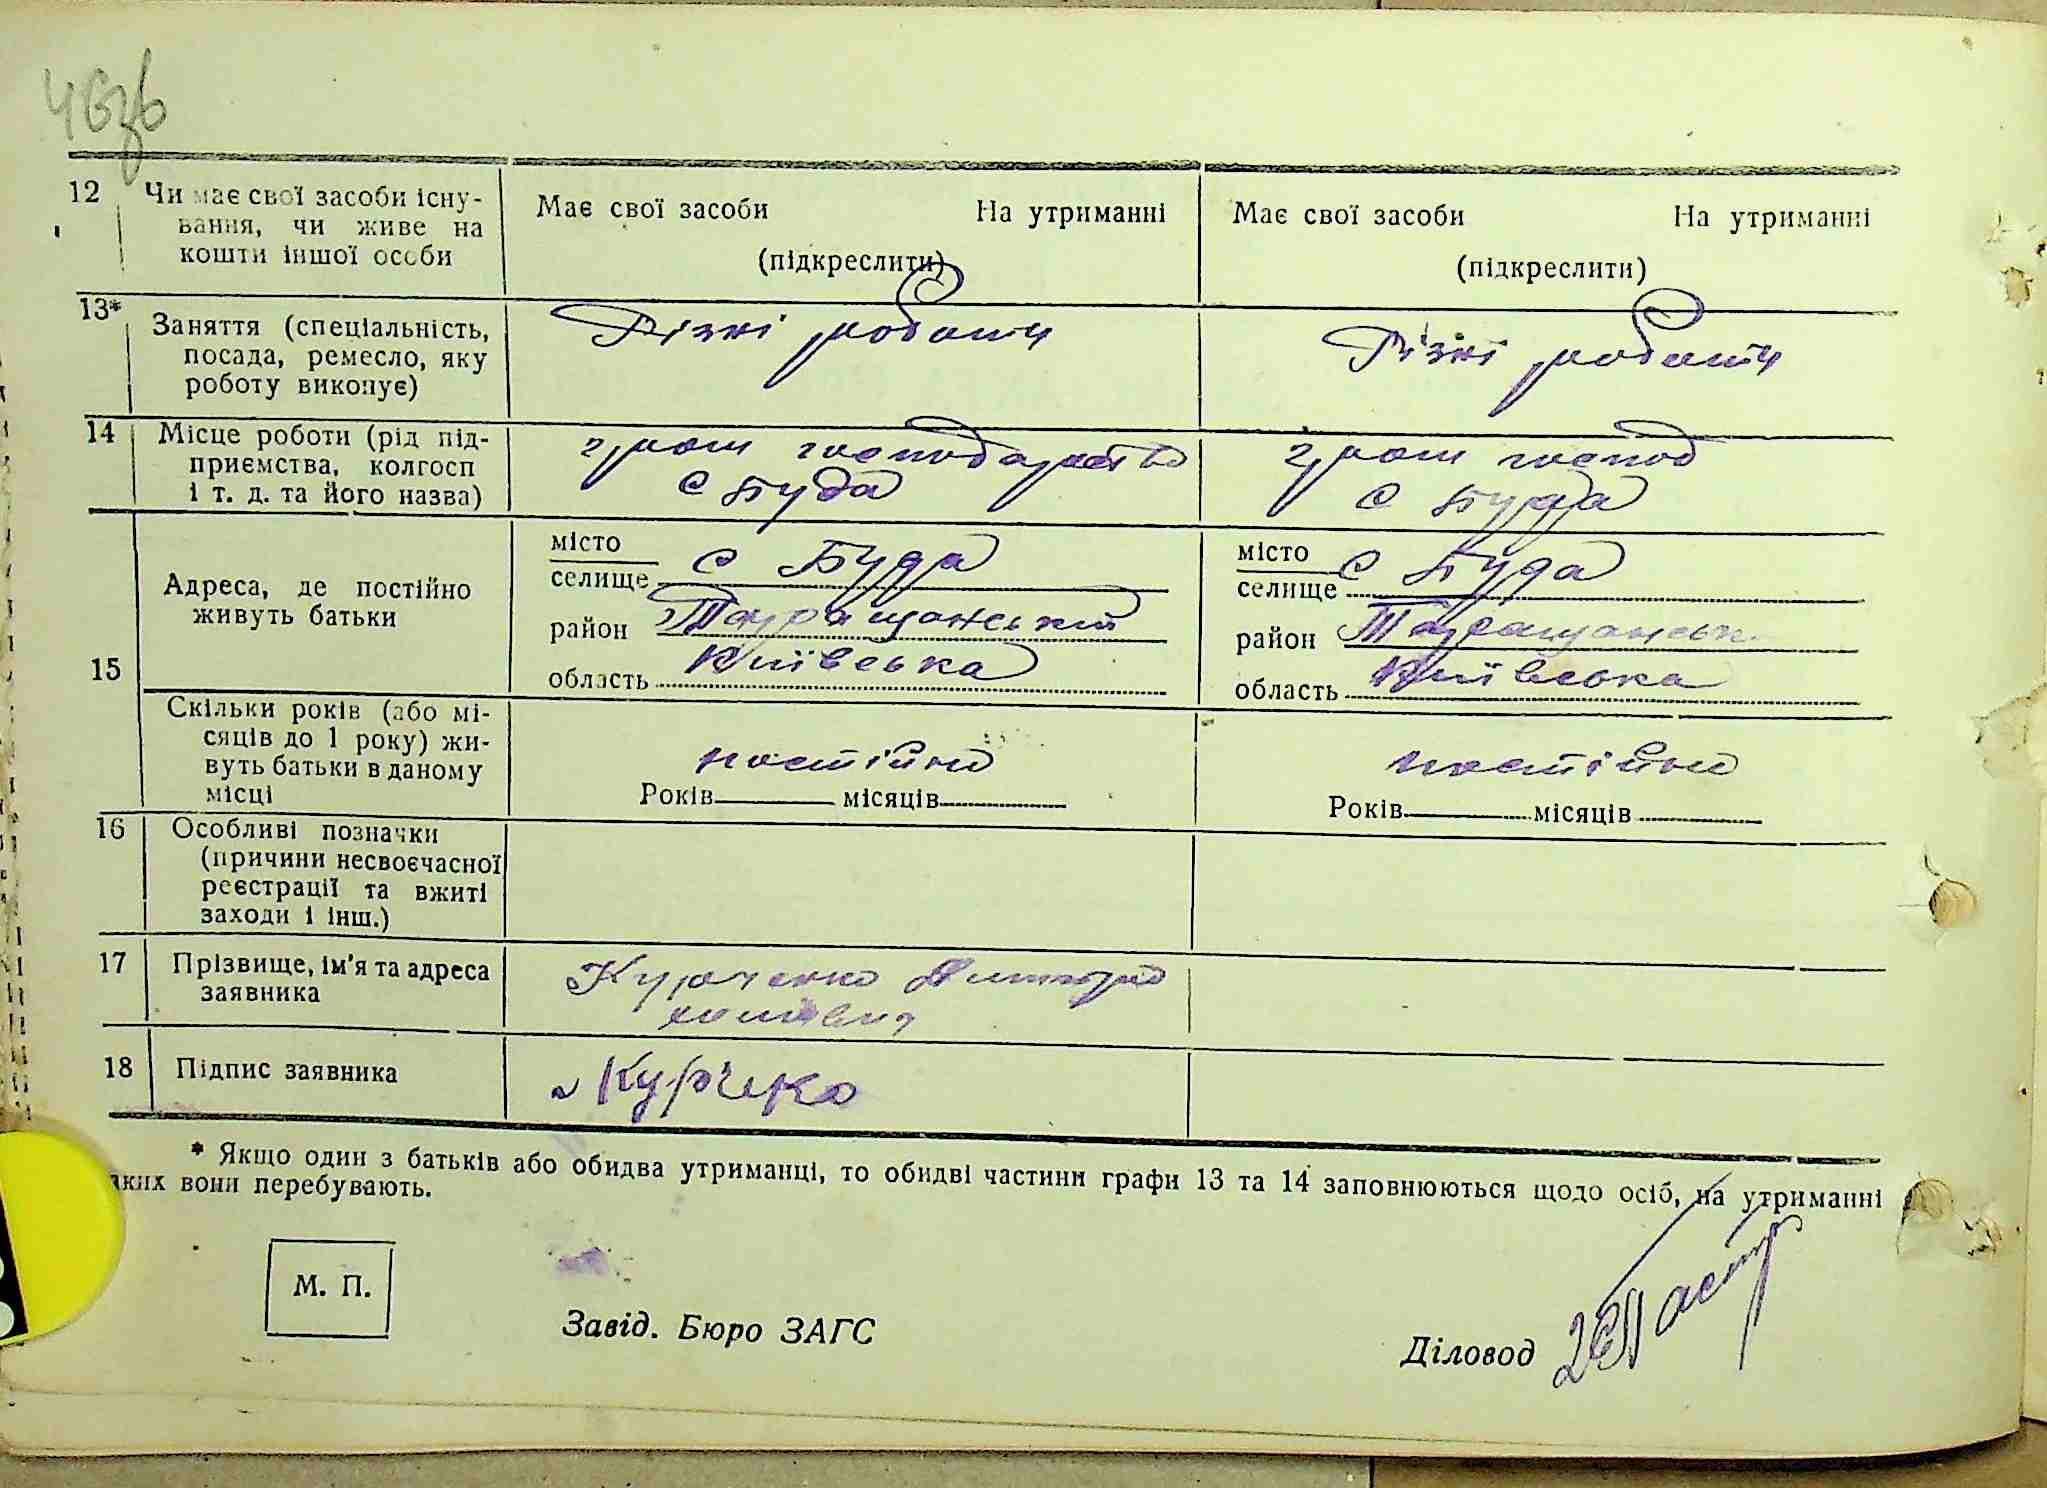 46зв
12 Чи має свої засоби існу-
вання, чи живе на
кошти іншої особи
Має свої засоби На утриманні
(підкреслити)
Має свої засоби На утриманні
(підкреслити)
13* Заняття (спеціальність,
посада, ремесло, яку
роботу виконує)
Різні роботи
Різні роботи
14 Місце роботи (рід під-
приємства, колгосп
і т. д. та його назва)
гром господарство
с Буда
гром господ
с Буда
15
Адреса, де постійно
живуть батьки
місто
селище с Буда
район Таращанський
область Київська
місто
селище с Буда
район Таращанськ
область Київська
Скільки років (або мі-
сяців до 1 року) жи-
вуть батьки в даному
місці
постійно
Років місяців
постійно
Років місяців
16 Особливі позначки
(причини несвоєчасної
реєстрації та вжиті
заходи і інш.)
17 Прізвище, ім'я та адреса
заявника
Курченко
18 Підпис заявника
Курчеко
* Якщо один з батьків або обидва утриманці, то обидві частини графи 13 та 14 заповнюються щодо осіб, на утриманні
яких вони перебувають.
М. П.
Завід. Бюро ЗАГС
Діловод